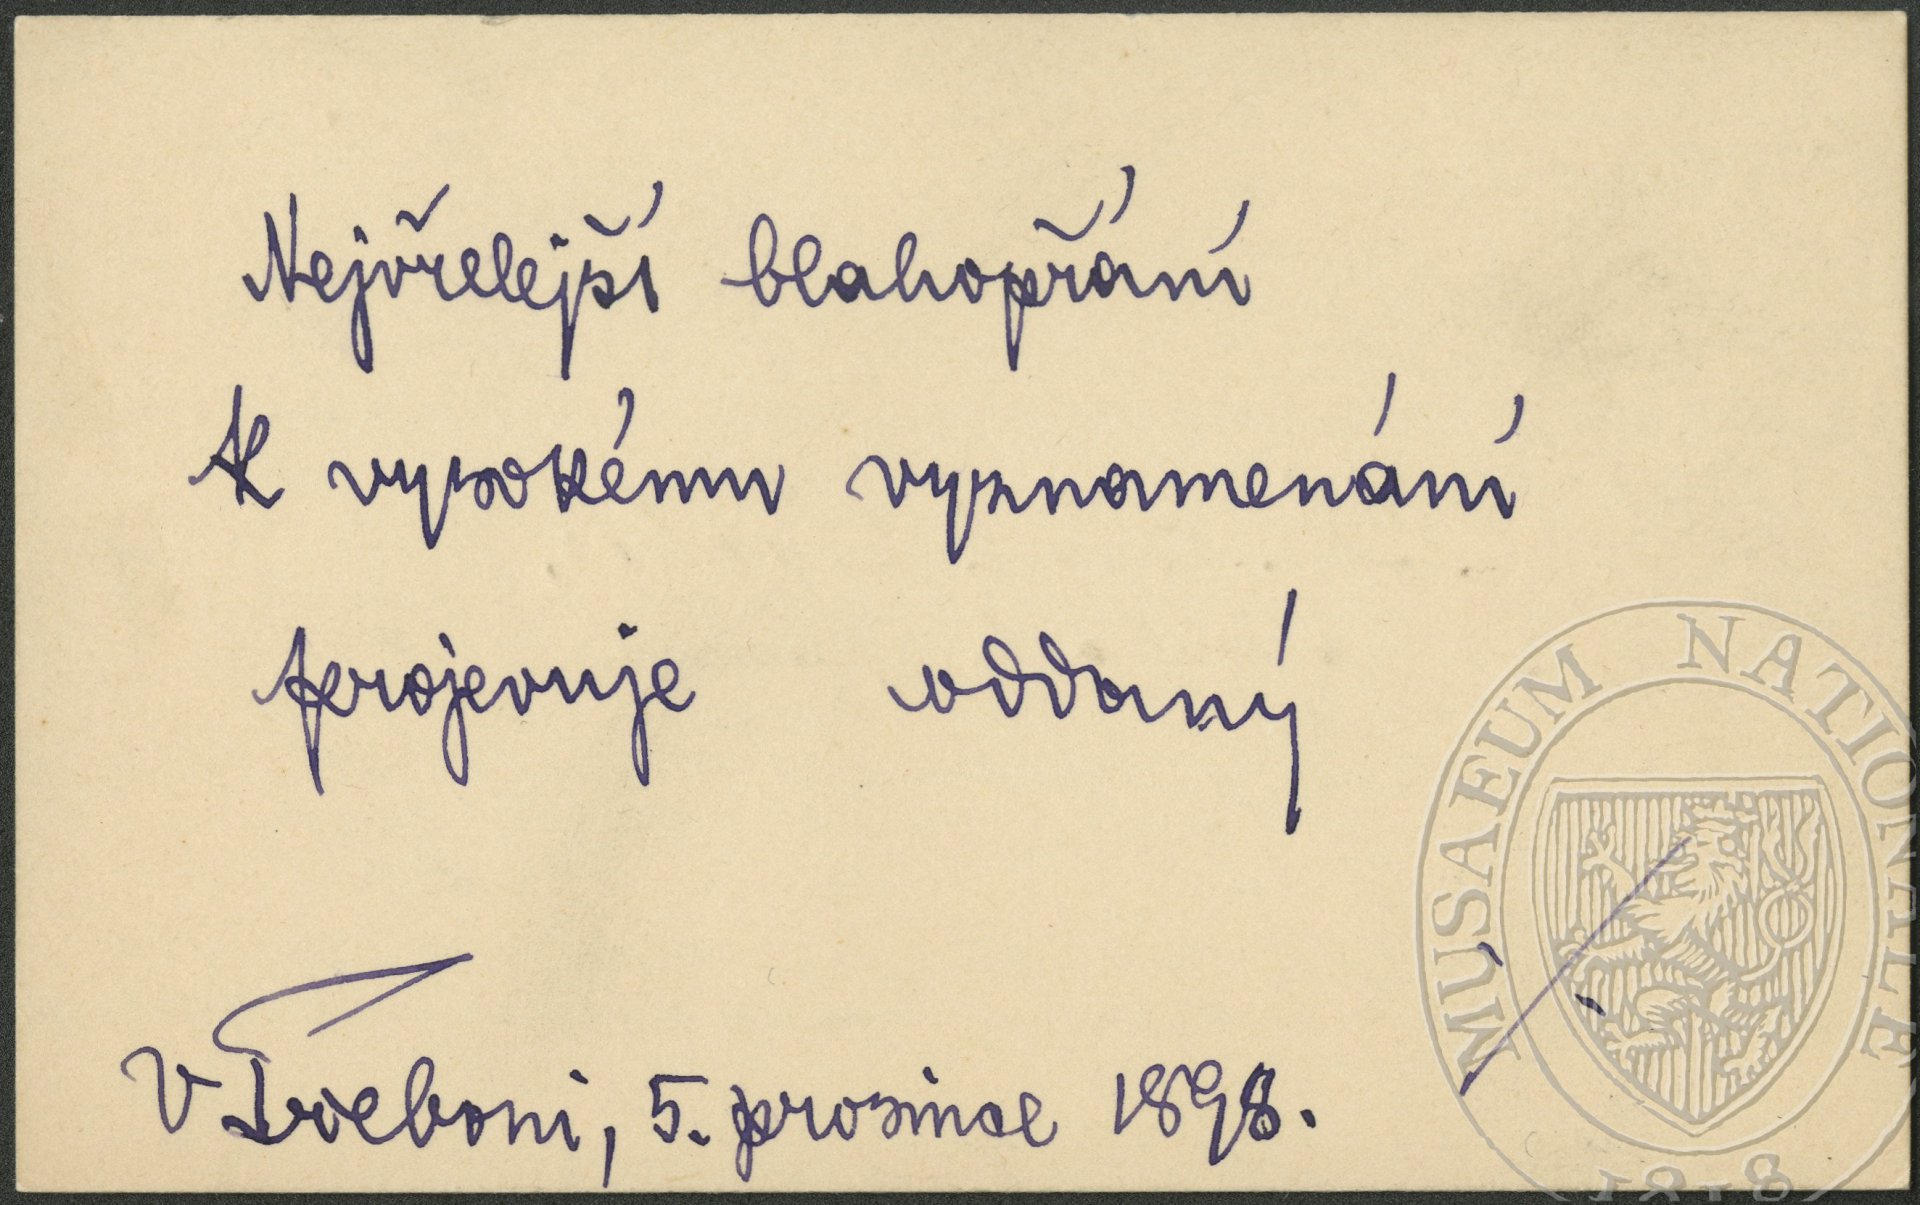 Nejvřelejší blahopřání
k vysokému vyznamenání
projevuje oddaný
V Třeboni, 5. prosince 1898.
MUSAEUM NATIONALE
1818